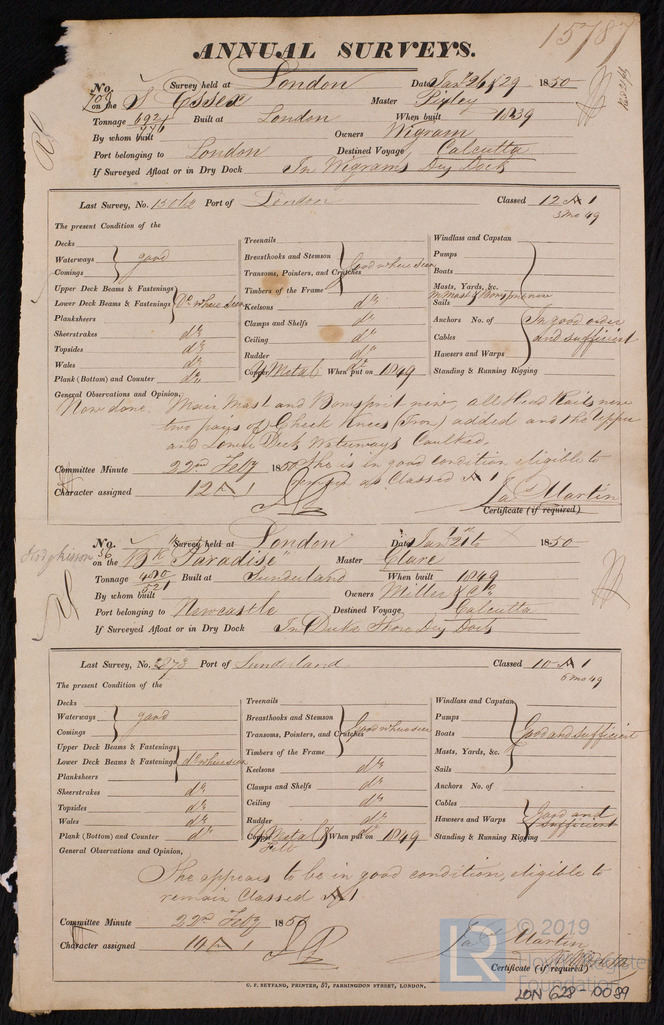 15787
ANNUAL SURVEYS.
No. Survey held at London Date Jany 26 & 29 1850
on the S Essex Master Pixley
Tonnage 692 Built at London When built 1839
776
By whom built Owners Wigram
Port belonging to London Destined Voyage Calcutta
If Surveyed Afloat or in Dry Dock In Wigrams Dry Dock
Last Survey, No. Port of London Classed 12 A 1
3 mo 49
The present Condition of the
Decks
Waterways good
Comings
Upper Deck Beams & Fastenings
Lower Deck Beams & Fastenings Do where seen
Planksheers
Sheerstrakes do
Topsides do
Wales do
Plank (Bottom) and Counter do
Treenails
Breasthooks and Stemson Good where seen
Transoms, Pointers, and Crutches
Timbers of the Frame
Keelsons do
Clamps and Shelfs do
Ceiling do
Rudder do
Copper Y Metal When put on 1849
Windlass and Capstan
Pumps
Boats
Masts, Yards, &c.
M Mast & Bowsprit new
Sails
Anchors No. of In good order
Cables and sufficient
Hawsers and Warps
Standing & Running Rigging
General Observations and Opinion,
Now done. Main Mast and Bowsprit new, all Head Rails new
two pays of Cheek Knees (Iron) added and the Upper
and Lower Deck Waterways Caulked.
She is in good condition eligible to
Committee Minute 22nd Feby 1850
remain as Classed A 1
Character assigned 12 A 1
Jas Martin
Certificate (if required)
No. 56 Survey held at London Date Jany 21st 1850
Hodgkinson
on the Bk "Paradise" Master Clare
Tonnage 480 Built at Sunderland When built 1849
521
By whom built Owners Miller & Co
Port belonging to Newcastle Destined Voyage Calcutta
If Surveyed Afloat or in Dry Dock In Duke Shore Dry Dock
Last Survey, No. 2873 Port of Sunderland Classed 10 A 1
6 mo 49
The present Condition of the
Decks
Waterways good
Comings
Upper Deck Beams & Fastenings
Lower Deck Beams & Fastenings do where seen
Planksheers
Sheerstrakes do
Topsides do
Wales do
Plank (Bottom) and Counter do
Treenails
Breasthooks and Stemson Good where seen
Transoms, Pointers, and Crutches
Timbers of the Frame
Keelsons do
Clamps and Shelfs do
Ceiling do
Rudder do
Copper Y Metal & When put on 1849
Felt
Windlass and Capstan
Pumps
Boats Good and sufficient
Masts, Yards, &c.
Sails
Anchors No. of
Cables
Hawsers and Warps Good and
sufficient
Standing & Running Rigging
General Observations and Opinion,
She appears to be in good condition, eligible to
remain Classed A 1
Committee Minute 22nd Feby 1850
Character assigned 10 A 1
Jas Martin
Certificate (if required)
C. F. SEYFANG, PRINTER, 57, FARRINGDON STREET, LONDON.
LR
© 2019
Lloyd's Register
Foundation
LON 628-0089